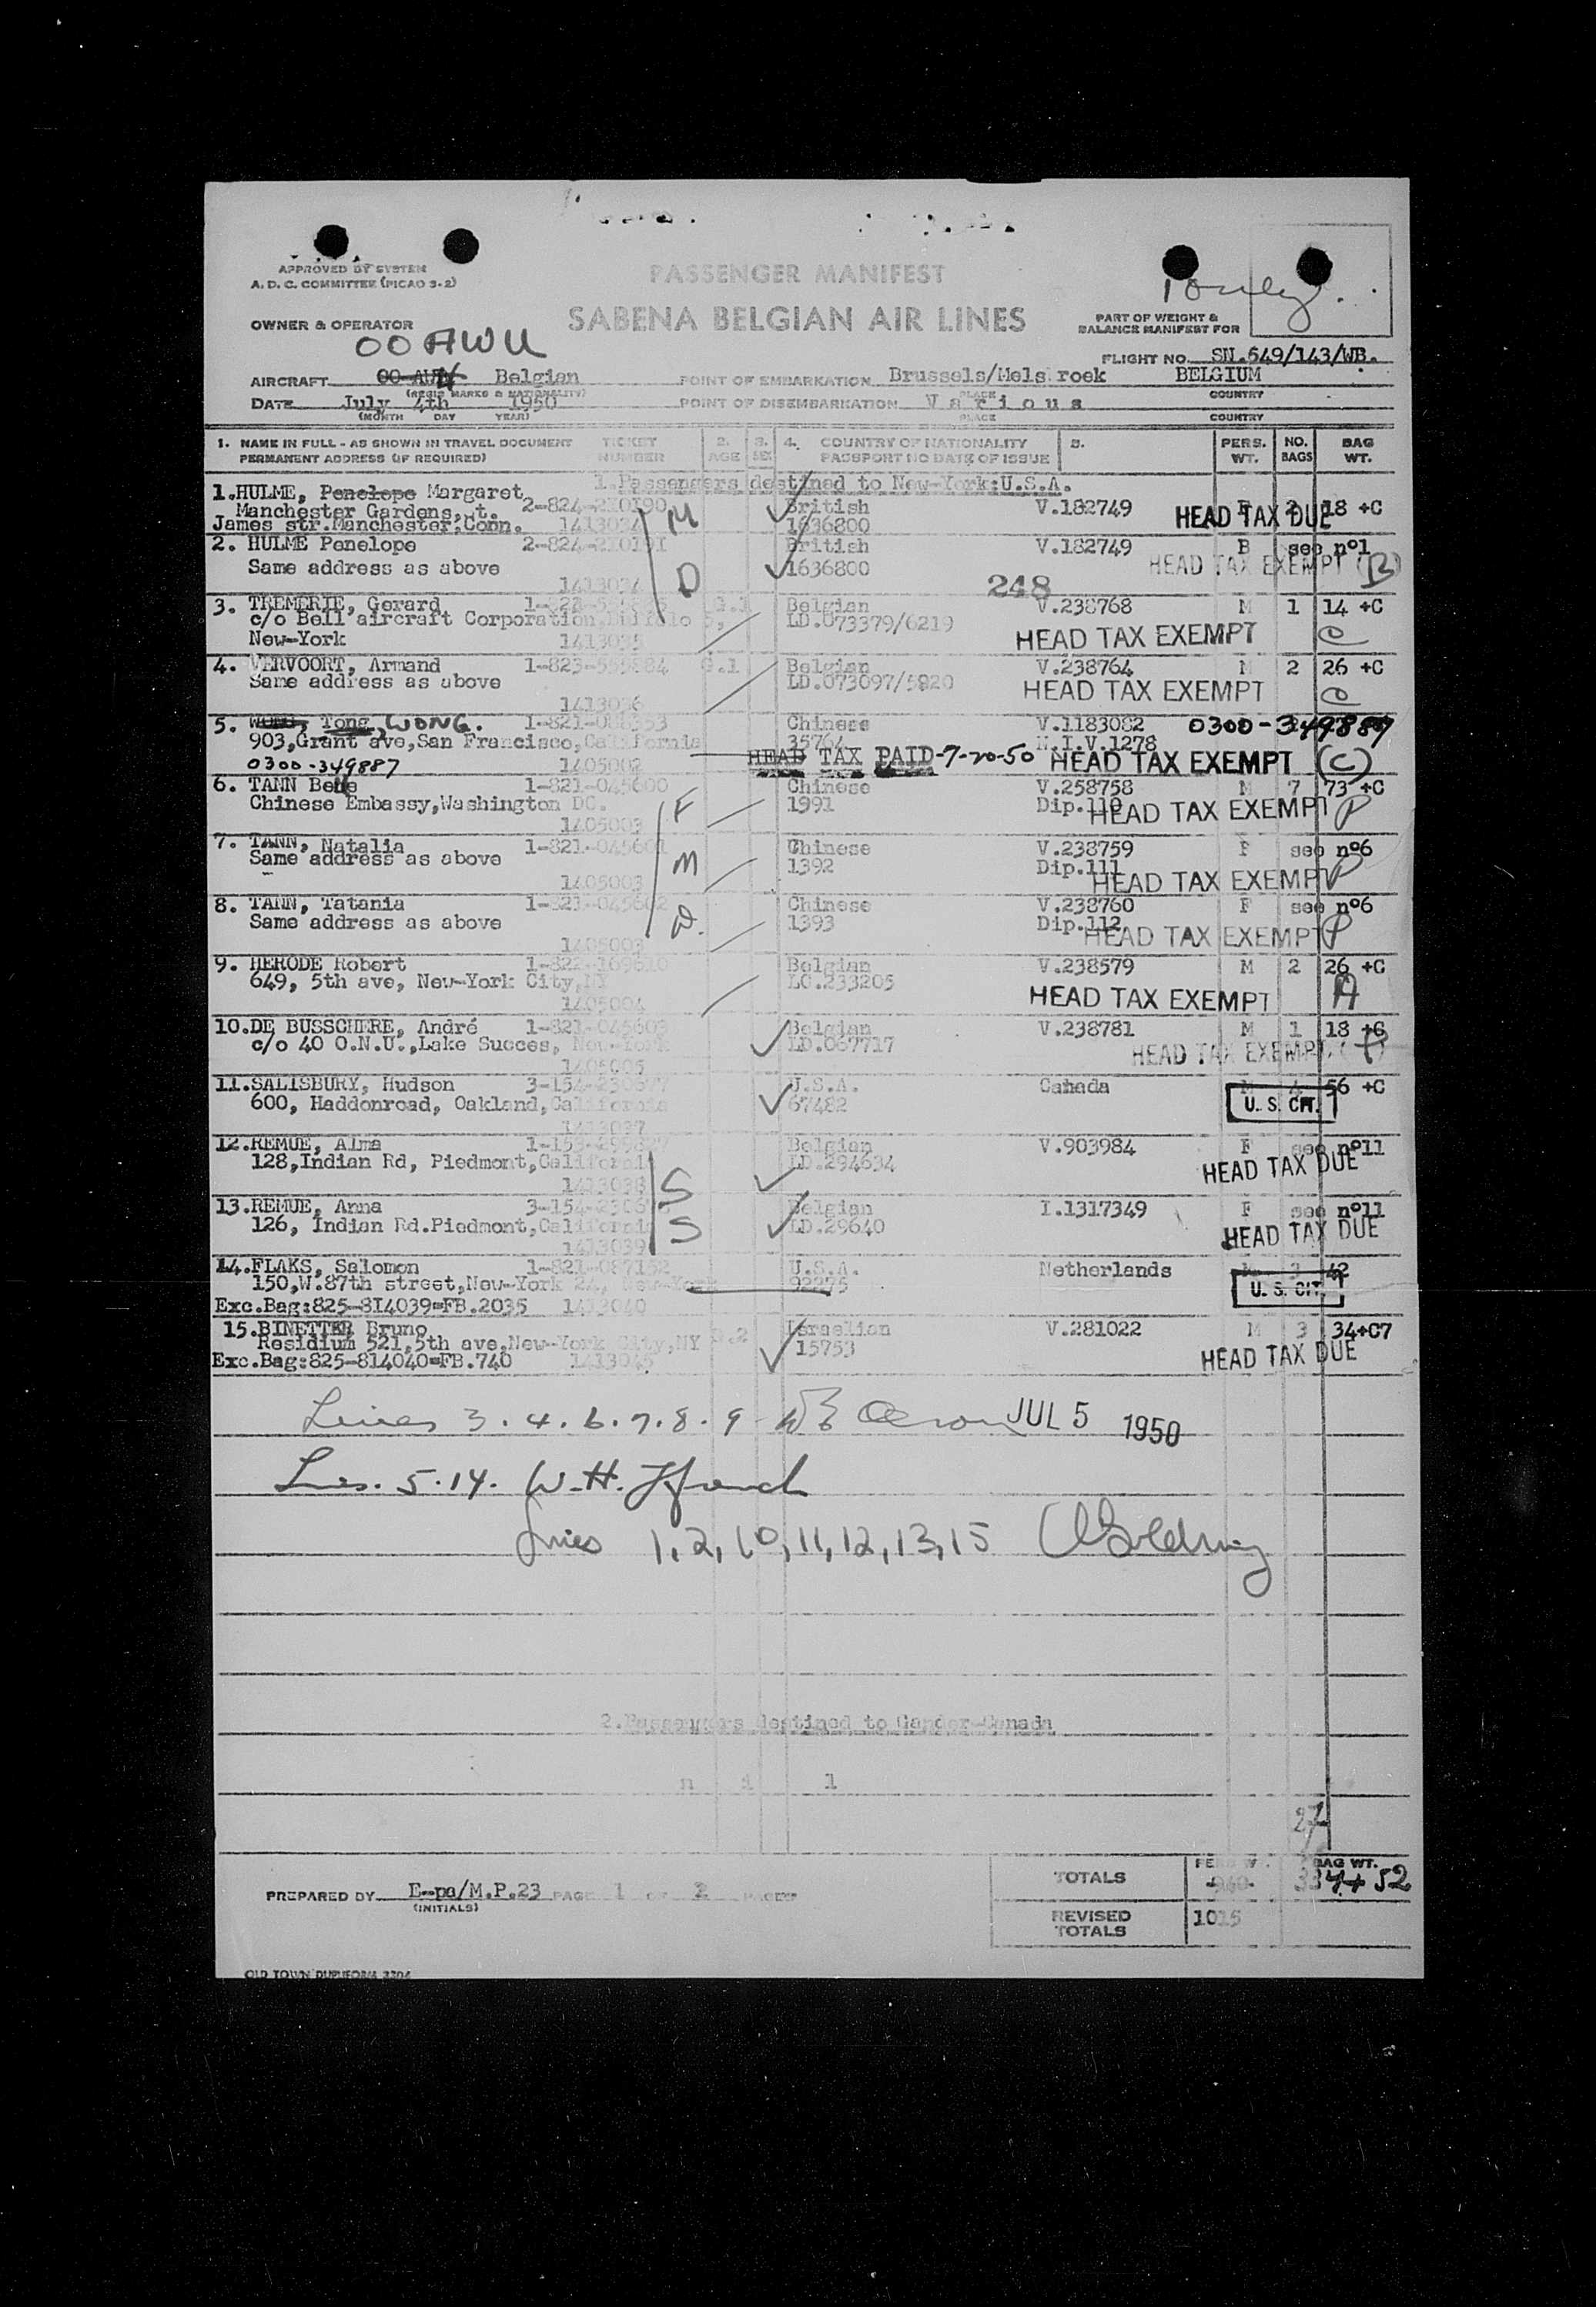 APPROVED BY SYSTEM
A. D. C. COMMITTEE (PICAO 3-2)
PASSENGER MANIFEST
SABENA BELGIAN AIR LINES
OWNER & OPERATOR
OO AWU
PART OF WEIGHT &
BALANCE MANIFEST FOR
FLIGHT NO. SN.549/143/WB.
AIRCRAFT Belgian
(REGIS MARKS & NATIONALITY)
POINT OF EMBARKATION Brussels/Mels roek BELGIUM
PLACE COUNTRY
DATE July 4th 1950
(MONTH DAY YEAR)
POINT OF DISEMBARKATION Various
PLACE COUNTRY
1. NAME IN FULL - AS SHOWN IN TRAVEL DOCUMENT
PERMANENT ADDRESS (IF REQUIRED)
TICKET NUMBER 2. AGE 3. SEX 4. COUNTRY OF NATIONALITY
PASSPORT NO DATE OF ISSUE 5. PERS. WT. NO. BAGS BAG WT.
1.Passengers destined to New-York:U.S.A.
1.HULME, Penelope Margaret British V.182749 F 2 18 +C
Manchester Gardens, t. 2-824-210190 M HEAD TAX DUE
James str.Manchester.Conn. 1413034 1636800
2. HULME Penelope 2-824-210191 British V.182749 B see nº1
Same address as above D 1636800 HEAD TAX EXEMPT (B)
1413034 248
3. TREMERIE, Gerard G.1 Belgian V.238768 M 1 14 +C
c/o Bell aircraft Corporation, Buffalo 5, LD.073379/6219
New-York 1413035 HEAD TAX EXEMPT C
4. VERVOORT, Armand 1-823-559884 G.1 Belgian V.238764 M 2 26 +C
Same address as above LD.073097/5920 HEAD TAX EXEMPT C
1413036
5. Tong, WONG. Chinese V.1183082 0300-349887
903,Grant ave,San Francisco,California 35764 N.I.V.1278
0300-349887 1405002 HEAD TAX PAID-7-20-50 HEAD TAX EXEMPT (C)
6. TANN Belle 1-821-045600 Chinese V.258758 M 7 73 +C
Chinese Embassy,Washington DC. F 1991 Dip.110 HEAD TAX EXEMPT P
1405003
7. TANN, Natalia 1-821-045601 Chinese V.238759 F see nº6
Same address as above M 1392 Dip.111 HEAD TAX EXEMPT P
1405003
8. TANN, Tatania 1-821-045602 Chinese V.238760 F see nº6
Same address as above D. 1393 Dip.112 HEAD TAX EXEMPT P
1405003
9. HERODE Robert Belgian V.238579 M 2 26 +C
649, 5th ave, New-York City,NY LC.233205 HEAD TAX EXEMPT A
1405004
10.DE BUSSCHERE, André 1-821-045603 Belgian V.238781 M 1 18 +C
c/o 40 O.N.U.,Lake Succes, New-York LD.067717 HEAD TAX EXEMPT
1405005
11.SALISBURY, Hudson U.S.A. Canada M 4 56 +C
600, Haddonroad, Oakland,California 67482 U. S. CIT.
1413037
12.REMUE, Alma Belgian V.903984 F see nº11
128,Indian Rd, Piedmont,California S LD.294634 HEAD TAX DUE
1413038
13.REMUE, Anna Belgian I.1317349 F see nº11
126, Indian Rd.Piedmont,California S LD.29640 HEAD TAX DUE
1413039
14.FLAKS, Salomon 1-821-087152 U.S.A. Netherlands M 3 42
150,W.87th street,New-York 24, New-York 92275 U. S. CIT.
Exc.Bag:825-814039=FB.2035 1413040
15.BINETTER Bruno G.2 Israelian V.281022 M 3 34+C7
Residium 521,5th ave,New-York City,NY 15753
Exc.Bag:825-814040=FB.740 HEAD TAX DUE
Lines 3.4.6.7.8.9 JUL 5 1950
Lines. 5.14. W.H.
Lines 1,2,10,11,12,13,15
2.Passengers destined to Gander-Canada
n i l
27
TOTALS PERS WT. BAG WT.
940 334+52
PREPARED BY E-pa/M.P.23 PAGE 1 OF 2 PAGES
(INITIALS)
REVISED TOTALS 1015
OLD TOWN DUPLIFORMS 3304